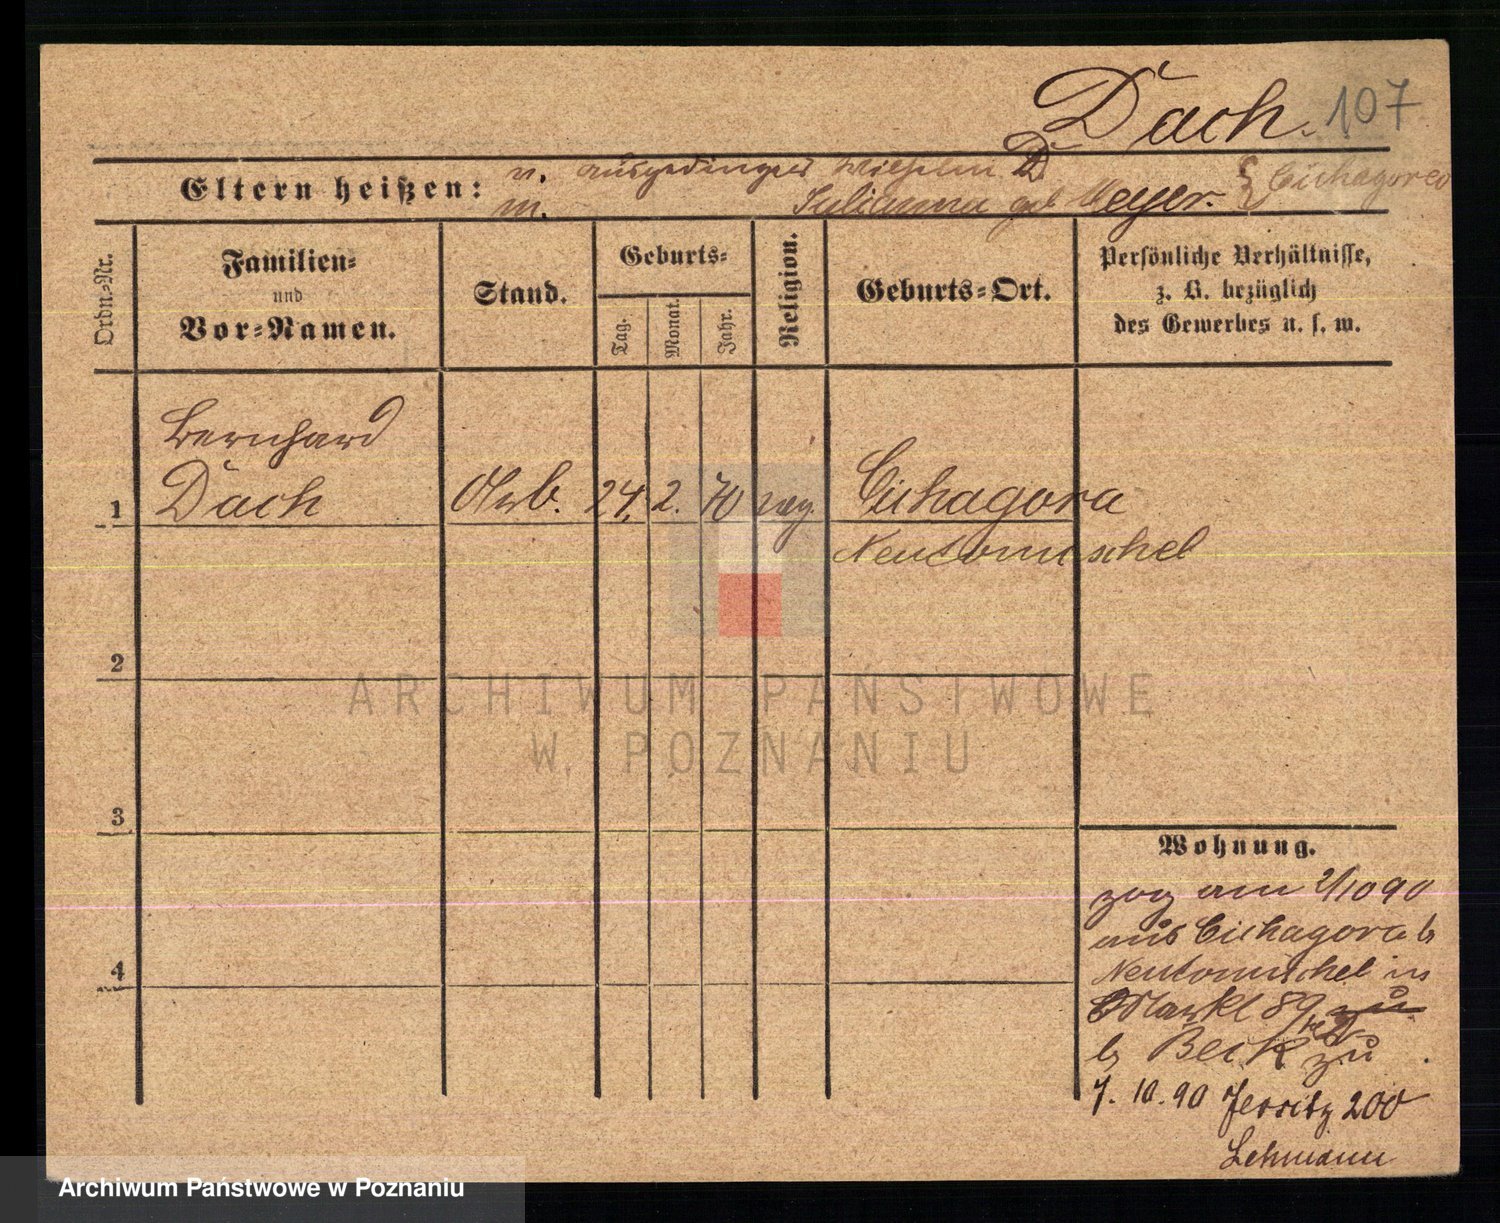 Dach. 107
Eltern heißen:
v. Ausgedinger Wilhelm D
m. Julianna geb Meyer. Cichagora
Ordn.-Nr.
Familien-
und
Vor-Namen.
Stand.
Geburts-
Tag.
Monat.
Jahr.
Religion.
Geburts-Ort.
Persönliche Verhältnisse,
z. B. bezüglich
des Gewerbes u. s. w.
Bernhard
1 Dach Arb. 24. 2. 70 Cichagora
Neutomischel
2
3
4
Wohnung.
zog am 2/10 90
aus Cichagora b
Neutomischel in
Markt 89 zu
b Beck zu
7. 10. 90 Jersitz 200
Lehmann
ARCHIWUM PAŃSTWOWE
W POZNANIU
Archiwum Państwowe w Poznaniu